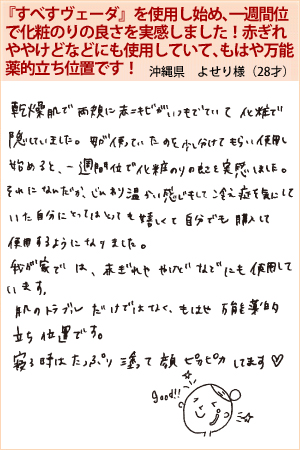 『すべすヴェーダ』を使用し始め、一週間位
で化粧のりの良さを実感しました！赤ぎれ
ややけどなどにも使用していて、もはや万能
薬的立ち位置です！ 沖縄県 よせり様（28才）
乾燥肌で両頬に赤ニキビがいつもでていて 化粧で
隠していました。母が使っていたのを少し分けてもらい使用し
始めると、一週間位で化粧のりの良さを実感しました。
それになんだか、じんわり温かい感じもして冷え症を気にして
いた自分にとってはとっても嬉しくて自分でも購入して
使用するようになりました。
我が家では、赤ぎれや やけど などにも使用して
います。
肌のトラブル だけではなく、もはや 万能薬的
立ち位置です。
寝る時はたっぷり塗って 顔ピカピカしてます♡
good!!